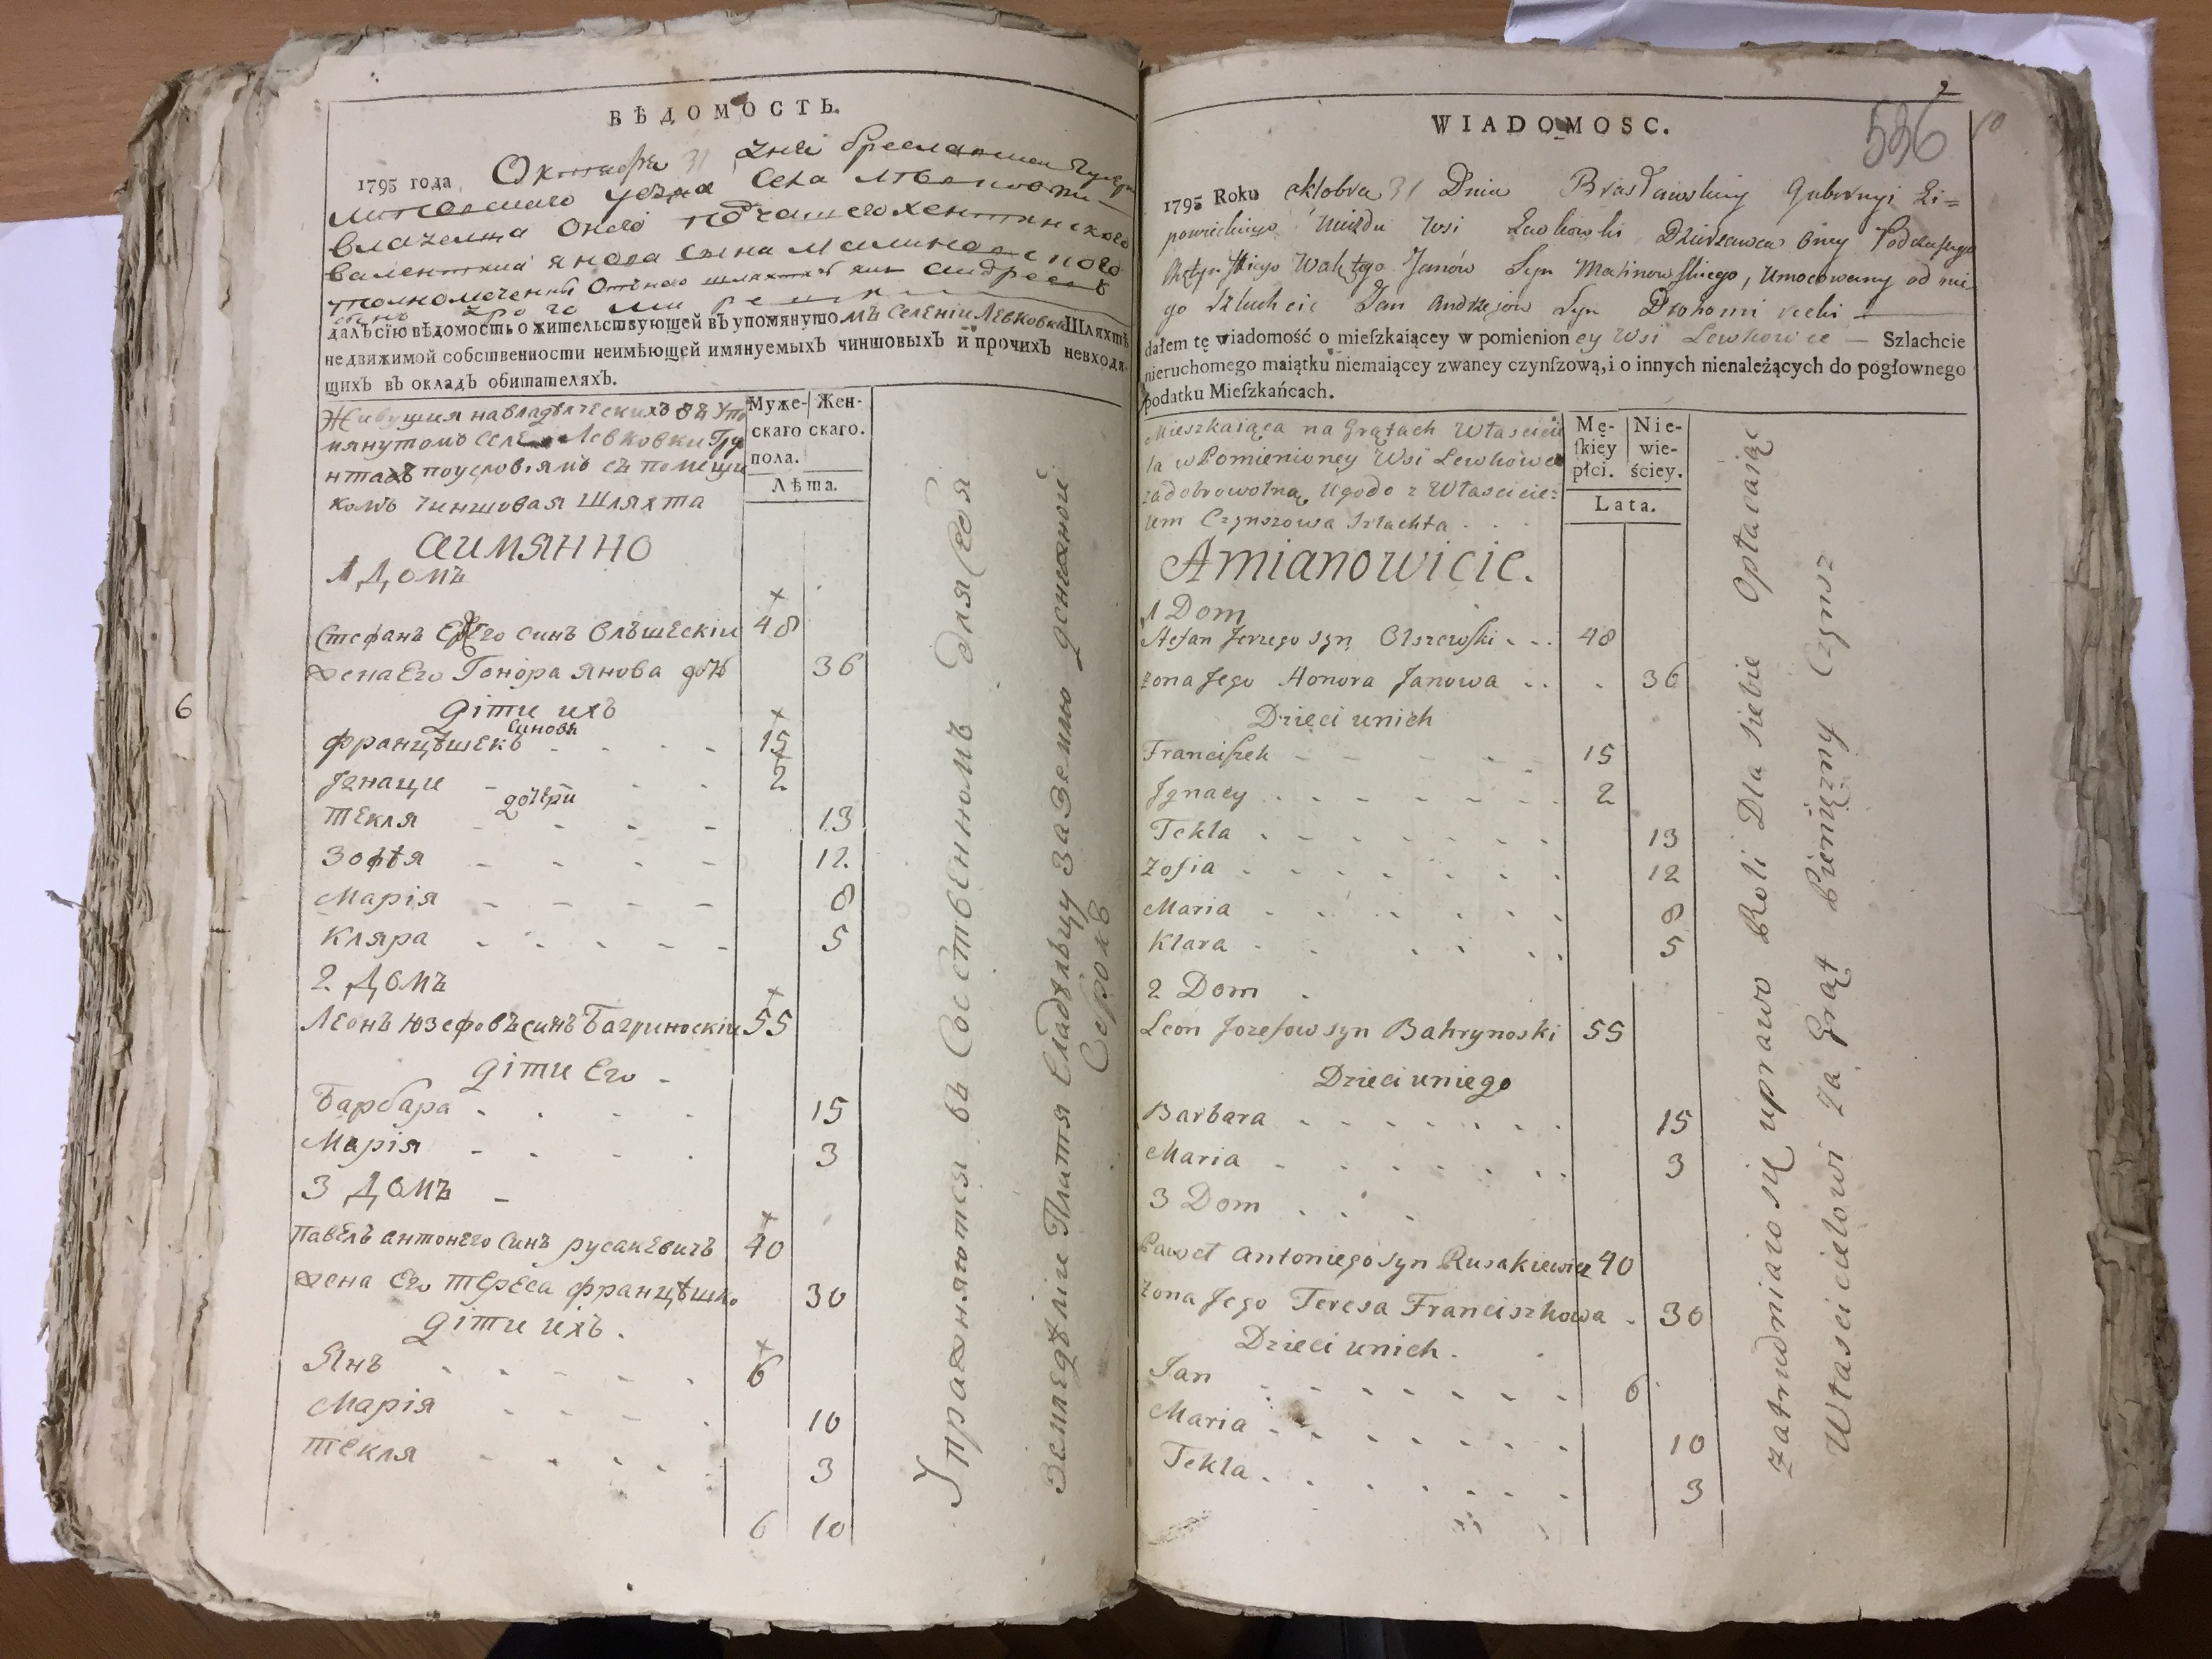 ВѢДОМОСТЬ.
1795 года Октября 31 дня
уезда Села
Валентия Янова сына Малиновского
далъ сїю вѣдомость о жительствующей въ упомянутомъ Селеніи Левковки Шляхтѣ
недвижимой собственности неимѣющей имянуемыхъ чиншовыхъ и прочихъ невходя-
щихъ въ окладъ обитателяхъ.
Живущия на владѣлческихъ въ Упо
мянутомъ Селе Левковки Гру
нтахъ поусловіямъ съ помещи
комъ Чиншовая Шляхта
Муже-
скаго
пола.
Жен-
скаго.
Лѣта.
аимянно
1 Домъ
Стефанъ Ержего синъ Олъшевскіи 48
жена Его Гонора Янова дочь 36
діти ихъ
Синовя
Францѣшекъ 15
Јгнаци 2
дочери
Текля 13
Зофѣя 12
Марія 8
Кляра 5
2 Домъ
Леонъ Юзефовъ синъ Багриноскіи 55
діти Его
Барбара 15
Марія 3
3 Домъ
Павелъ антонего Синъ русакевичъ 40
жена Его Тереса Францѣшко 30
діти ихъ.
Янъ 6
Марія 10
Текля 3
6 10
Упражняются въ Собственномъ для себя
Земледѣліи Платя Владѣльцу за Землю денежной
6
2
536
WIADOMOSC.
1795 Roku oktobra 31 Dnia Brasławskiey Gubernyi Li=
powieckiego Uiezdu wsi Lewkowki Dzierzawca Oney Podczaszego
Janów Syn Malinowskiego, Umocowany od nie
go Szluchcic Jan Andrzejow Syn
dałem tę wiadomość o mieſzkaiącey w pomienioney Wsi Lewkowce — Szlachcie
nieruchomego maiątku niemaiącey zwaney czynſzową, i o innych nienależących do pogłownego
podatku Mieſzkańcach.
Mieszkaiąca na Grątach Właścicie
la w Pomienioney Wsi Lewkowce
za dobrowolną Ugodo z Właścicie=
lem Czynszowa Szlachta
Mę-
ſkiey
płci.
Nie-
wie-
ściey.
Lata.
Amianowicie.
1 Dom
Stefan Jerzego syn Olszewski 48
Zona Jego Honora Janowa 36
Dzieci unich
Franciſzek 15
Jgnacy 2
Tekla 13
Zofia 12
Maria 8
Klara 5
2 Dom
Leon Jozefow syn Bahrynoski 55
Dzieci uniego
Barbara 15
Maria 3
3 Dom
Paweł Antoniego syn Rusakiewicz 40
Zona Jego Teresa Franciszkowa 30
Dzieci unich.
Jan 6
Maria 10
Tekla 3
Zatrudniaio się uprawo Roli Dla siebie Opłacaiąc
Właścicielowi Za Grąt Pieniężny Czynsz